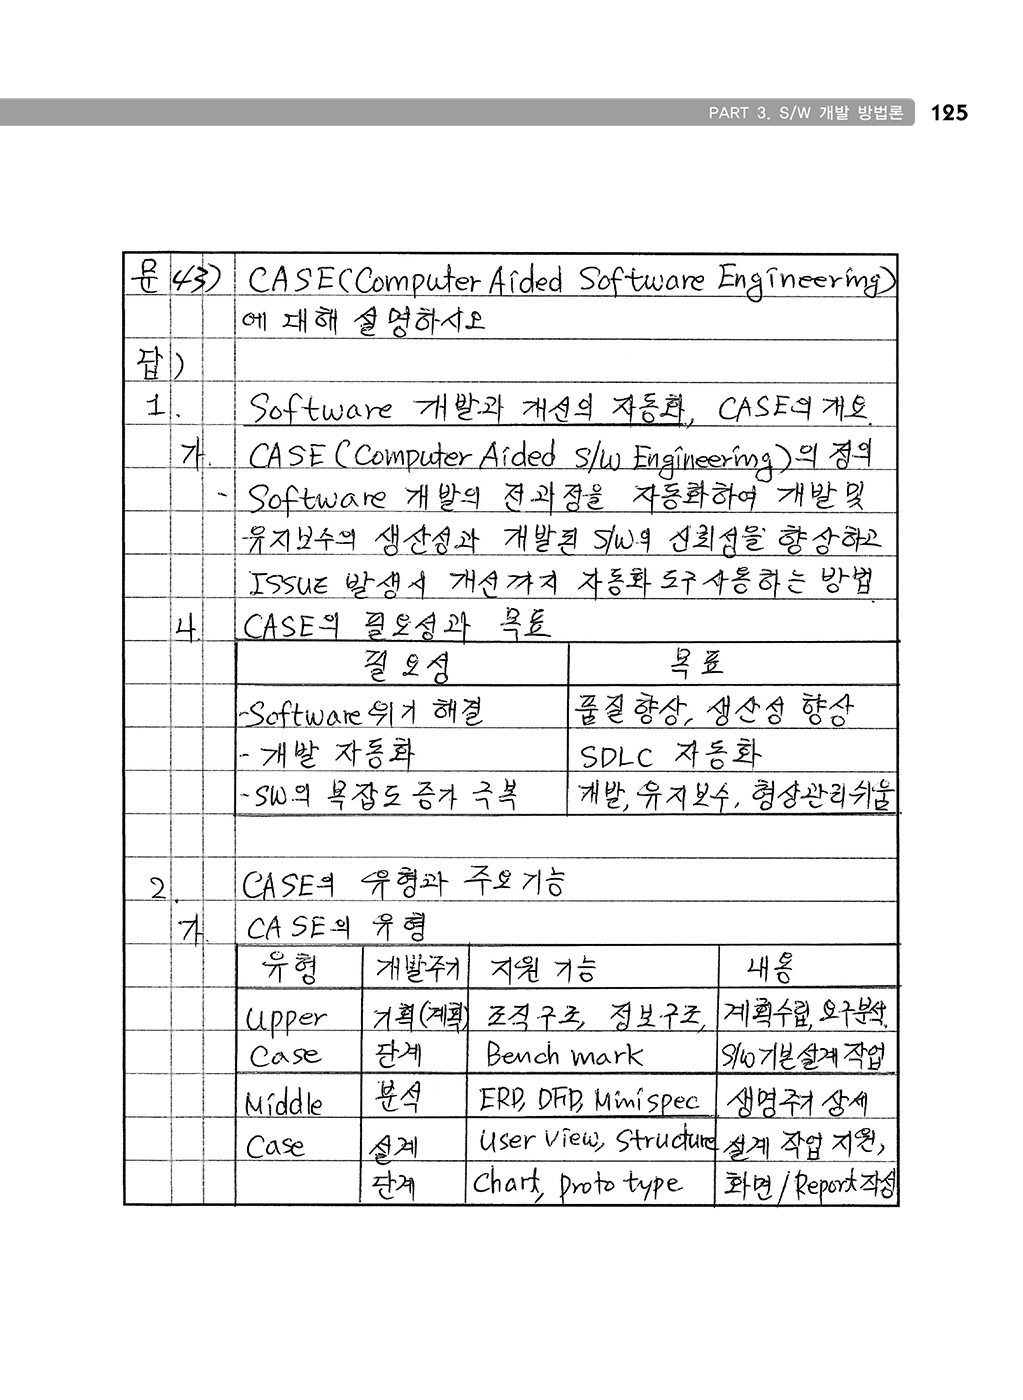 PART 3. S/W 개발 방법론 125
문 43) CASE(Computer Aided Software Engineering)
에 대해 설명하시오
답)
1. Software 개발과 개선의 자동화, CASE의 개요.
가. CASE(Computer Aided S/W Engineering)의 정의
- Software 개발의 전과정을 자동화하여 개발 및
유지보수의 생산성과 개발된 S/W의 신뢰성을 향상하고
ISSUE 발생시 개선까지 자동화 도구 사용하는 방법.
나. CASE의 필요성과 목표
필요성 목표
-Software 위기 해결 품질향상, 생산성 향상
- 개발 자동화 SDLC 자동화
-SW의 복잡도 증가 극복 개발, 유지보수, 형상관리쉬움
2. CASE의 유형과 주요기능
가. CASE의 유형
유형 개발주기 지원 기능 내용
Upper 기획(계획) 조직구조, 정보구조, 계획수립, 요구분석,
Case 단계 Bench mark S/W기본설계작업
Middle 분석 ERD, DFD, Minispec 생명주기 상세
Case 설계 User View, Structure 설계 작업 지원,
단계 Chart, Proto type 화면/Report작성